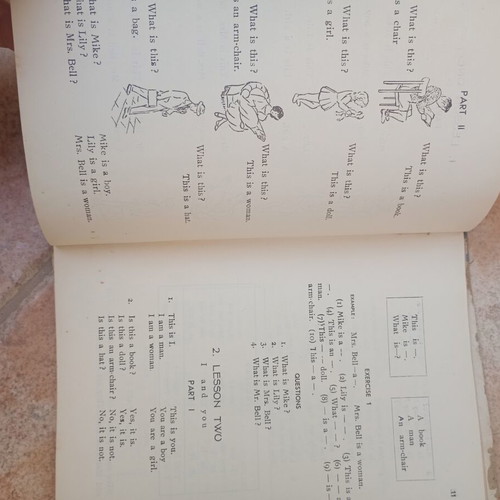 PART II
s a chair
What is this?
This is a book.
What is this?
s a girl.
What is this?
This is a doll
What is this?
s an arm-chair.
What is this?
This is a woman.
What is this?
s a bag.
What is this?
This is a hat.
hat is Mike?
hat is Lily?
hat is Mrs. Bell?
Mike is a boy.
Lily is a girl.
Mrs. Bell is a woman.
This is —.
Mike is —.
What is—?
A book
A man
An arm-chair
EXERCISE 1
EXAMPLE: Mrs. Bell—a —. Mrs. Bell is a woman.
(1) Mike is a —. (2) Lily is — —. (3) This is
—. (4) This is an —. (5) What — —? (6) — —
man. (7) This — — doll. (8) — is a —. (9) — is—
arm-chair. (10) This — a —.
QUESTIONS
1. What is Mike?
2. What is Lily?
3. What is Mrs. Bell?
4. What is Mr. Bell?
2. LESSON TWO
I and you
PART I
1. This is I. This is you.
I am a man. You are a boy
I am a woman You are a girl.
2. Is this a book? Yes, it is.
Is this a doll? Yes, it is.
Is this an arm-chair? No, it is not.
Is this a hat? No, it is not.